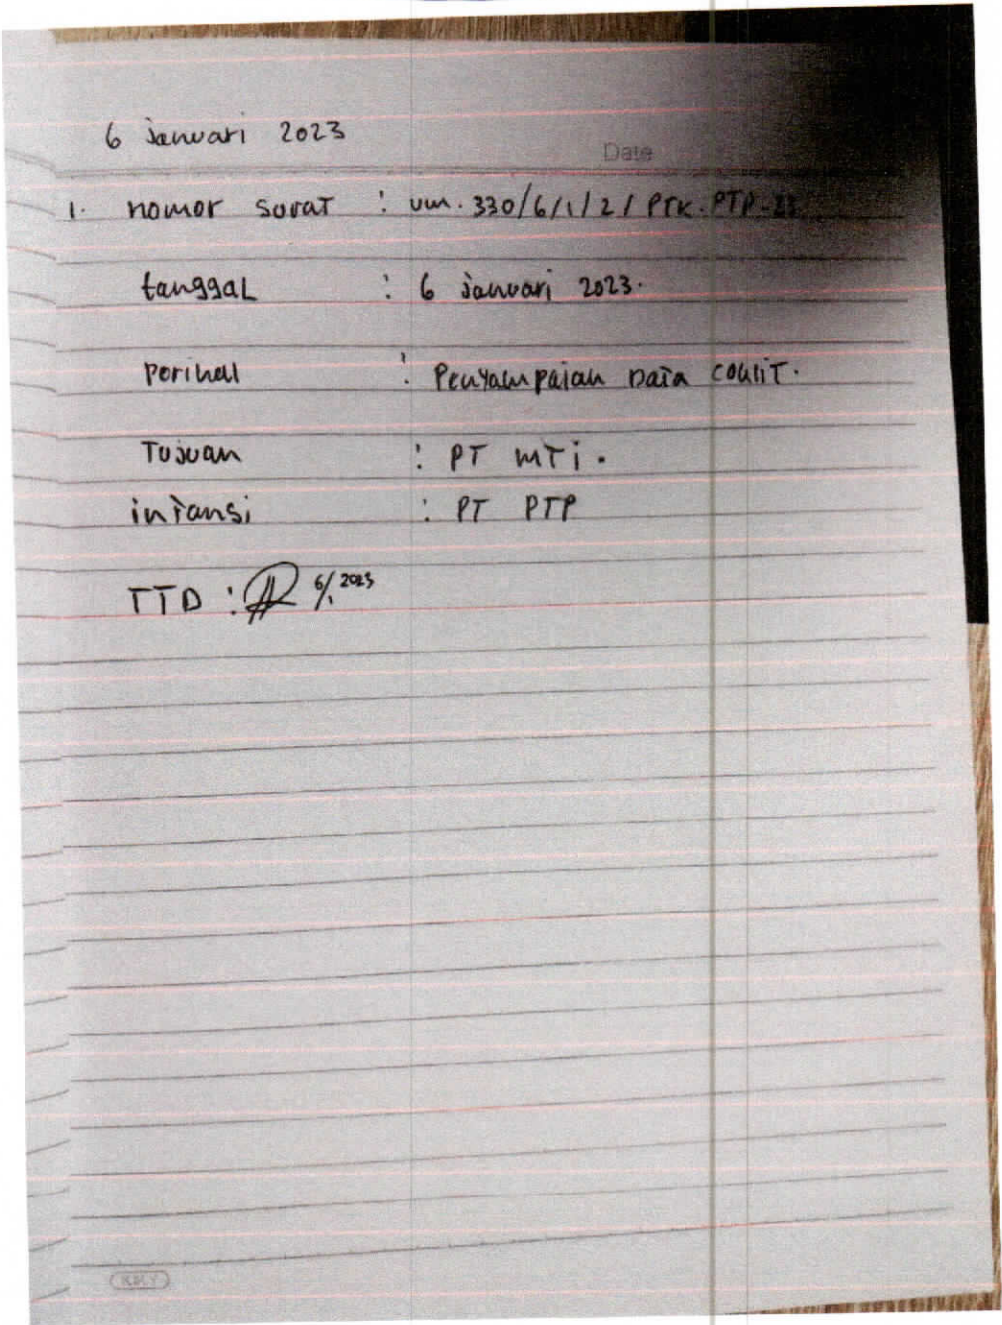 6 januari 2023
Date
1. nomor surat : um.330/6/1/2/PTK.PTP-23
tanggal : 6 januari 2023.
Perihal : Penyampaian Data coklit.
Tujuan : PT MTi.
intansi : PT PTP
TTD : 6/1 2023
KKY